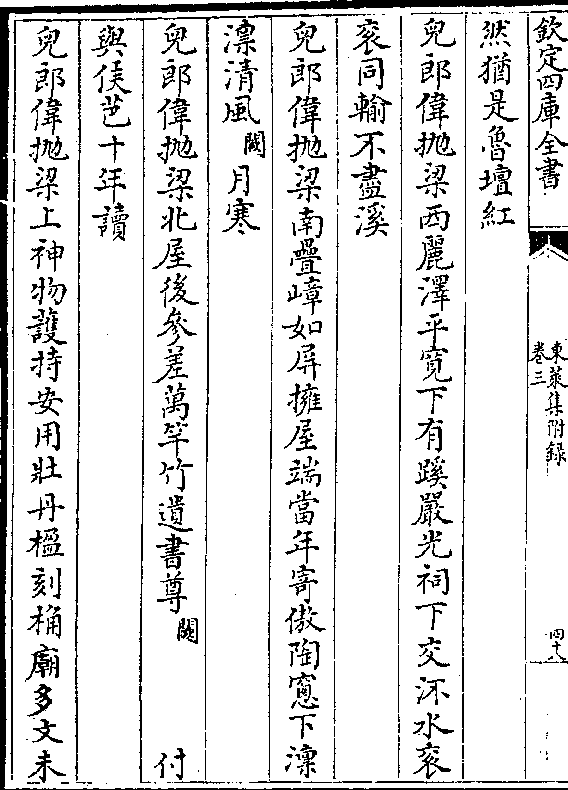 欽定四庫全書
東萊集附録
卷三
四十八
然猶是魯壇紅
兒郎偉抛梁西麗澤平寛下有蹊嚴光祠下交溪水衮
衮同輸不盡溪
兒郎偉抛梁南疊嶂如屏擁屋端當年寄傲陶窻下凛
凛清風闕月寒
兒郎偉抛梁北屋後參差萬竿竹遺書尊闕付
與侯芭十年讀
兒郎偉抛梁上神物䕶持安用壯丹楹刻桷廟多文未